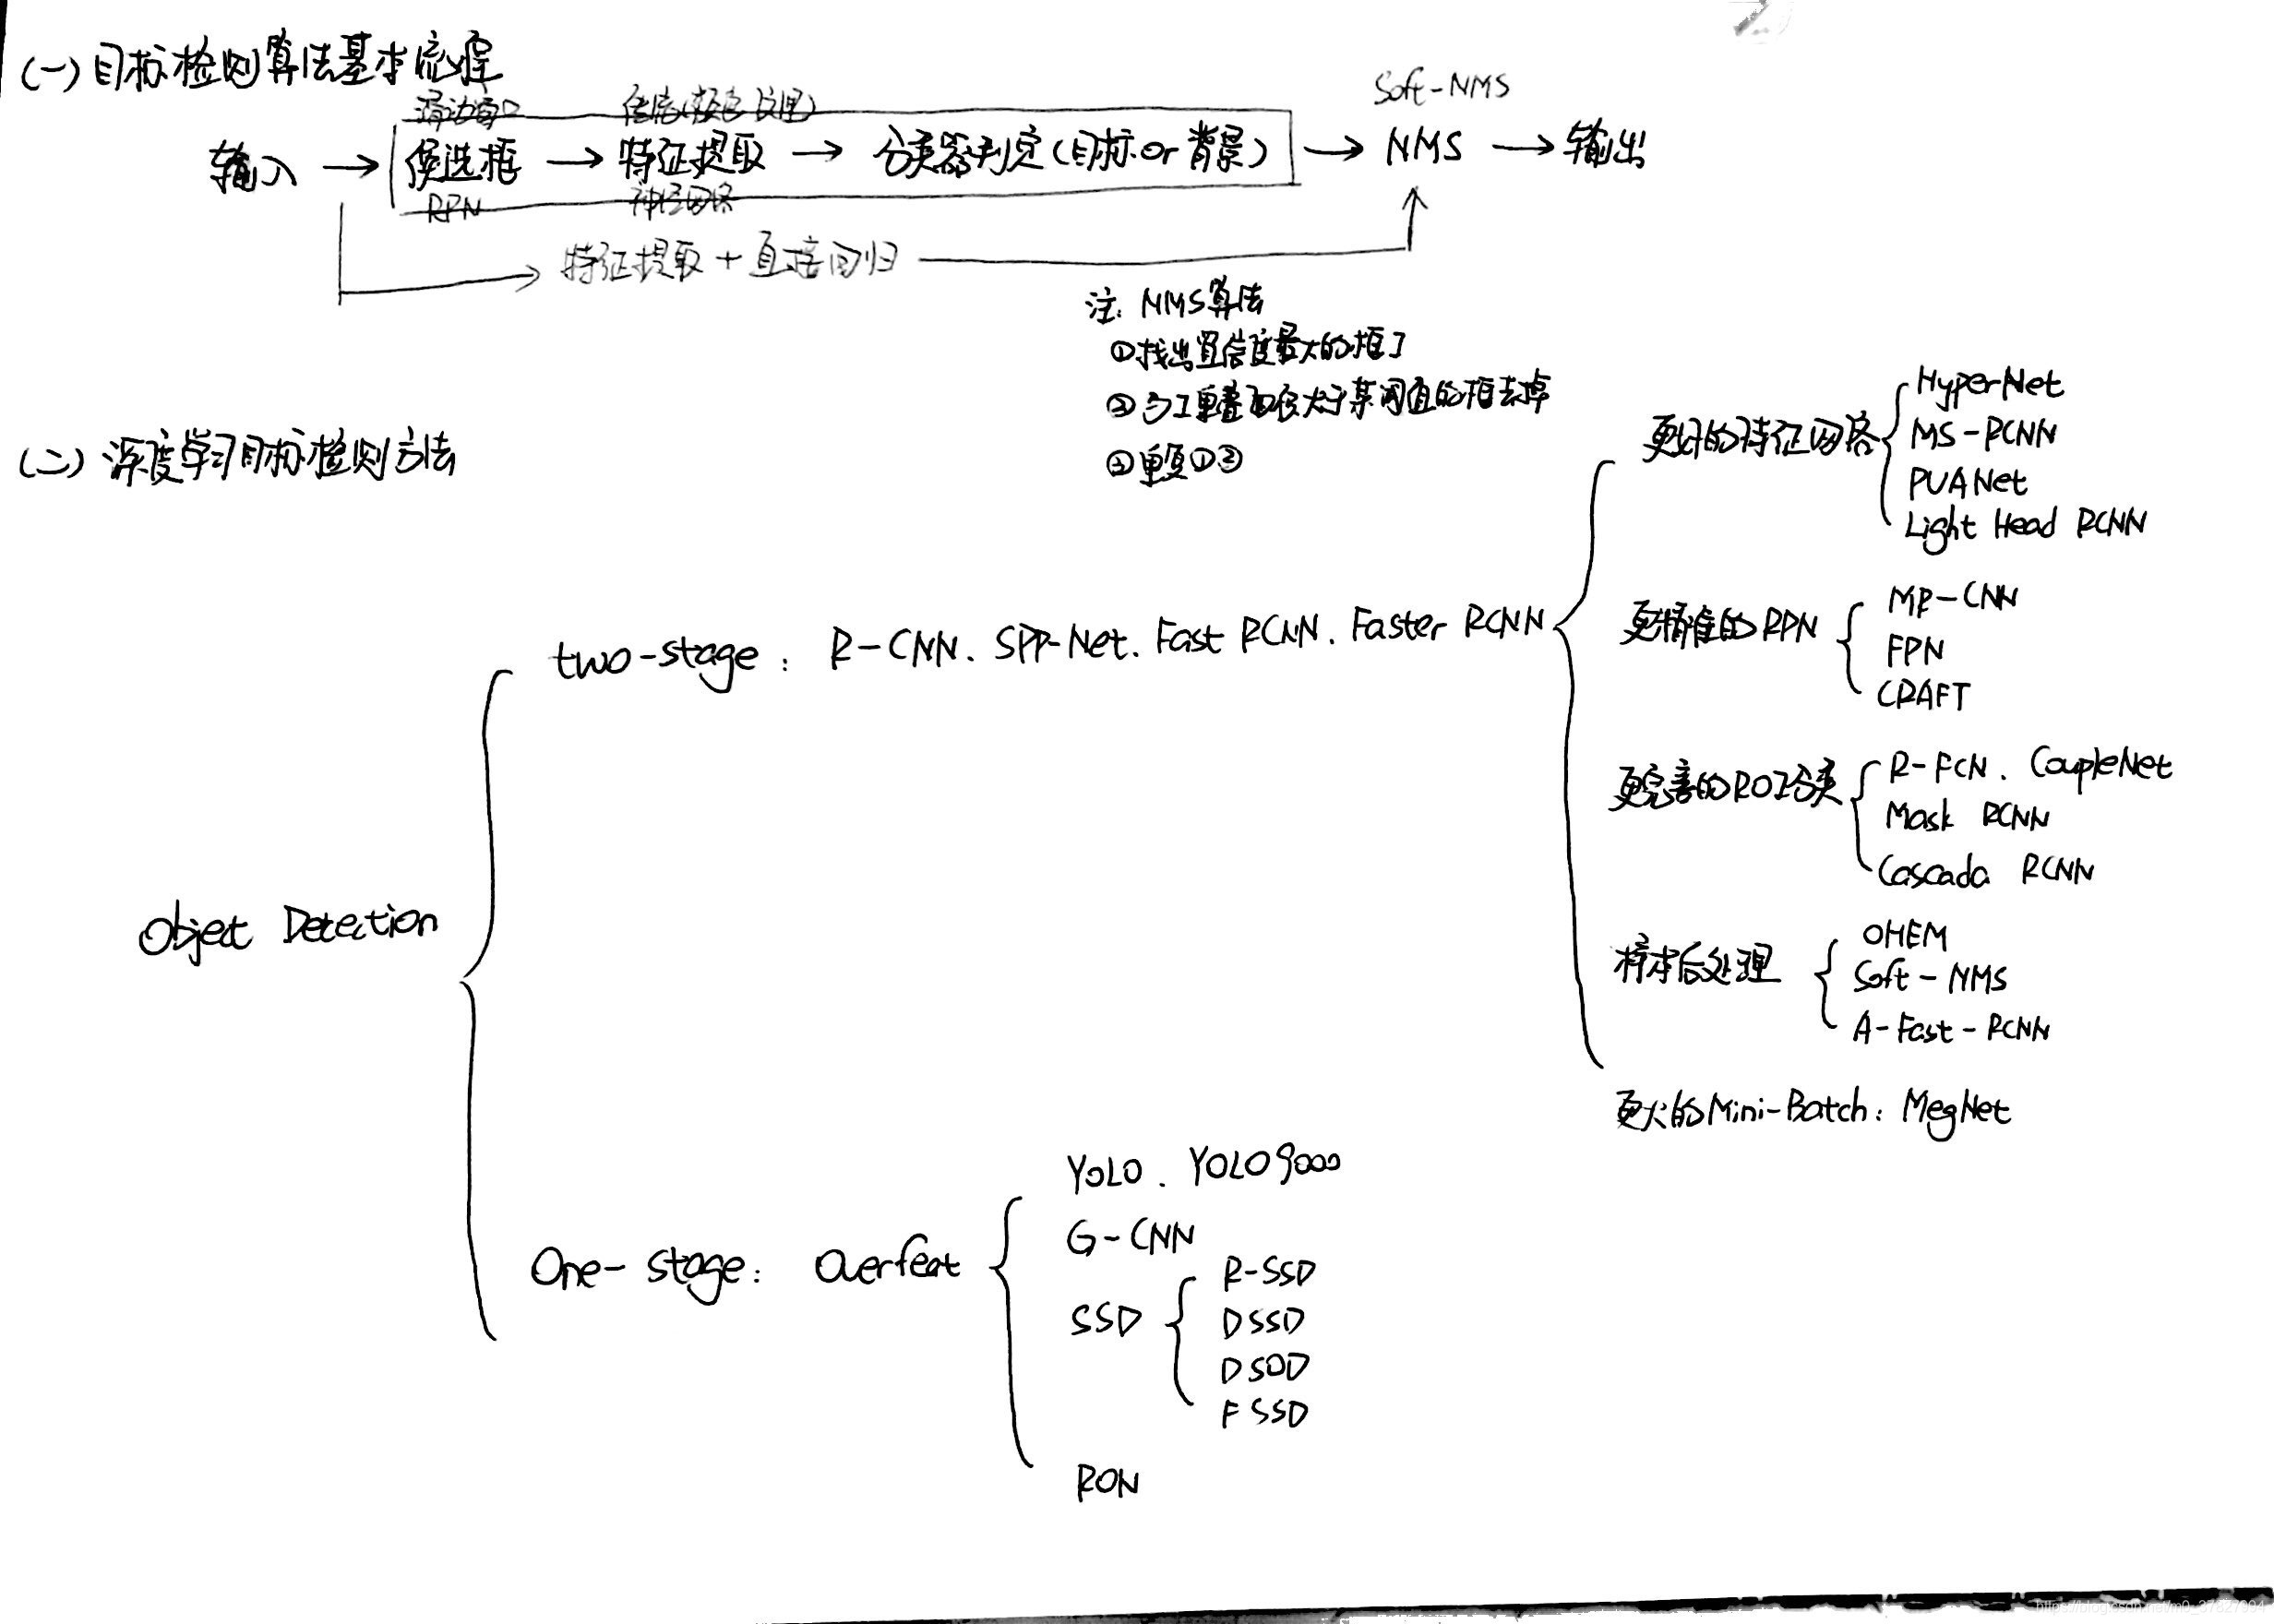 (一)目标检测算法基本流程
滑动窗口 传统(颜色纹理)
Soft-NMS
输入 → 候选框 → 特征提取 → 分类器判定(目标or背景) → NMS → 输出
RPN 神经网络
特征提取 + 直接回归
注: NMS算法
①找出置信度最大的框1
②与1重叠面积大于某阈值的框去掉
③重复①②
(二)深度学习目标检测方法
Object Detection
two-stage: R-CNN. SPP-Net. Fast RCNN. Faster RCNN
更好的特征网络
HyperNet
MS-RCNN
PVANet
Light Head RCNN
更精准的RPN
MR-CNN
FPN
CRAFT
更完善的ROI分类
R-FCN. CoupleNet
Mask RCNN
Cascada RCNN
样本后处理
OHEM
Soft-NMS
A-Fast-RCNN
更大的Mini-Batch: MegNet
One-stage: Overfeat
YOLO. YOLO9000
G-CNN
SSD
R-SSD
DSSD
DSOD
FSSD
RON